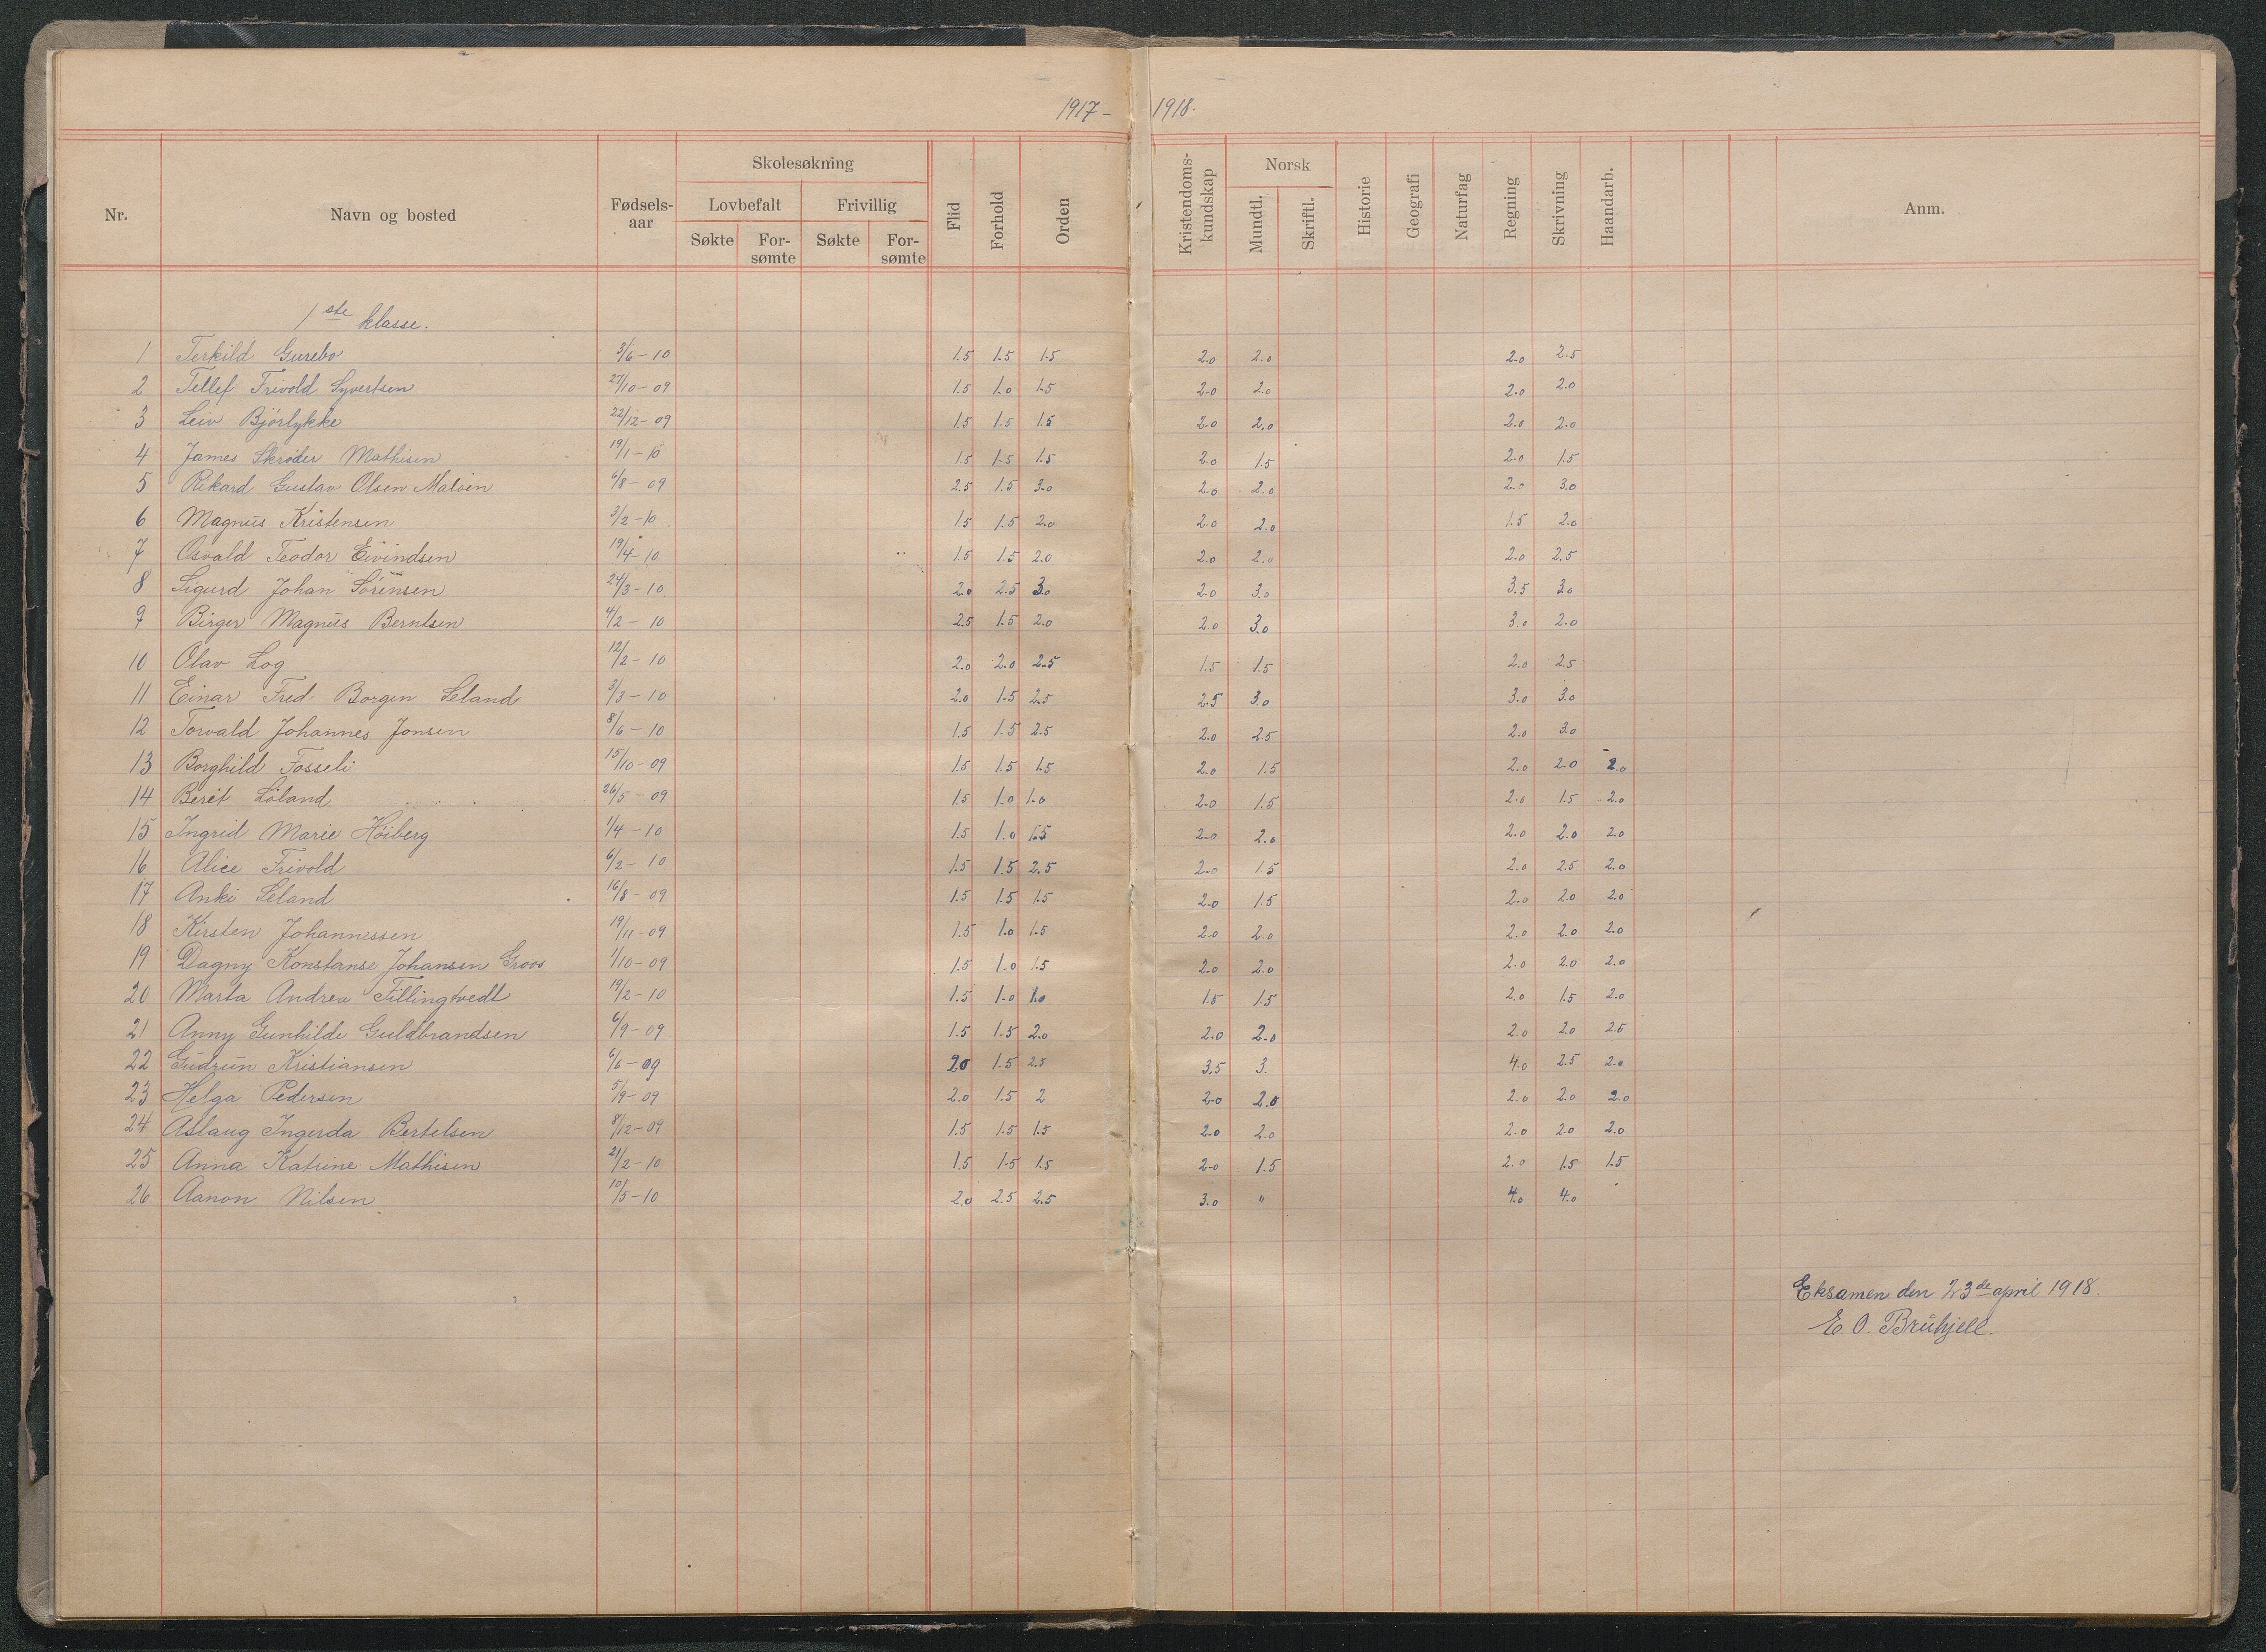 1917– 1918.
Nr. Navn og bosted Fødselsaar Skolesøkning Lovbefalt Søkte Forsømte Frivillig Søkte Forsømte Flid Forhold Orden Kristendomskundskap Norsk Mundtl. Skriftl. Historie Geografi Naturfag Regning Skrivning Haandarb. Anm.
1ste klasse.
1 Terkild Gurebo 3/6–10 1.5 1.5 1.5 2.0 2.0 2.0 2.5
2 Tellef Frivold Syvertsen 27/10–09 1.5 1.0 1.5 2.0 2.0 2.0 2.0
3 Leiv Bjørlykke 22/12–09 1.5 1.5 1.5 2.0 2.0 2.0 2.0
4 James Skrøder Mathisen 19/1–10 1.5 1.5 1.5 2.0 1.5 2.0 1.5
5 Rikard Gustav Olsen Maløen 6/8–09 2.5 1.5 3.0 2.0 2.0 2.0 3.0
6 Magnus Kristensen 3/2–10 1.5 1.5 2.0 2.0 2.0 1.5 2.0
7 Osvald Teodor Eivindsen 19/4–10 1.5 1.5 2.0 2.0 2.0 2.0 2.5
8 Sigurd Johan Sørensen 24/3–10 2.0 2.5 3.0 2.0 3.0 3.5 3.0
9 Birger Magnus Berntsen 4/2–10 2.5 1.5 2.0 2.0 3.0 3.0 2.0
10 Olav Log 12/2–10 2.0 2.0 2.5 1.5 1.5 2.0 2.5
11 Einar Fred Borgen Seland 3/3–10 2.0 1.5 2.5 2.5 3.0 3.0 3.0
12 Torvald Johannes Jonsen 8/6–10 1.5 1.5 2.5 2.0 2.5 2.0 3.0
13 Borghild Fosseli 15/10–09 1.5 1.5 1.5 2.0 1.5 2.0 2.0 2.0
14 Berit Løland 26/5–09 1.5 1.0 1.0 2.0 1.5 2.0 1.5 2.0
15 Ingrid Marie Høiberg 1/4–10 1.5 1.0 1.5 2.0 2.0 2.0 2.0 2.0
16 Alice Frivold 6/2–10 1.5 1.5 2.5 2.0 1.5 2.0 2.5 2.0
17 Anki Seland 16/8–09 1.5 1.5 1.5 2.0 1.5 2.0 2.0 2.0
18 Kirsten Johannessen 19/11–09 1.5 1.0 1.5 2.0 2.0 2.0 2.0 2.0
19 Dagny Konstanse Johansen Groos 1/10–09 1.5 1.0 1.5 2.0 2.0 2.0 2.0 2.0
20 Marta Andrea Fillingtvedt 19/2–10 1.5 1.0 1.0 1.5 1.5 2.0 1.5 2.0
21 Anny Gunhilde Guldbrandsen 6/9–09 1.5 1.5 2.0 2.0 2.0 2.0 2.0 2.5
22 Gudrun Kristiansen 6/6–09 2.0 1.5 2.5 3.5 3. 4.0 2.5 2.0
23 Helga Pedersen 5/9–09 2.0 1.5 2 2.0 2.0 2.0 2.0 2.0
24 Aslaug Ingerda Bertelsen 8/12–09 1.5 1.5 1.5 2.0 2.0 2.0 2.0 2.0
25 Anna Katrine Mathisen 21/2–10 1.5 1.5 1.5 2.0 1.5 2.0 1.5 1.5
26 Aanon Nilsen 10/5–10 2.0 2.5 2.5 3.0 " 4.0 4.0
Eksamen den 23de april 1918.
E. O. Bruhjell.